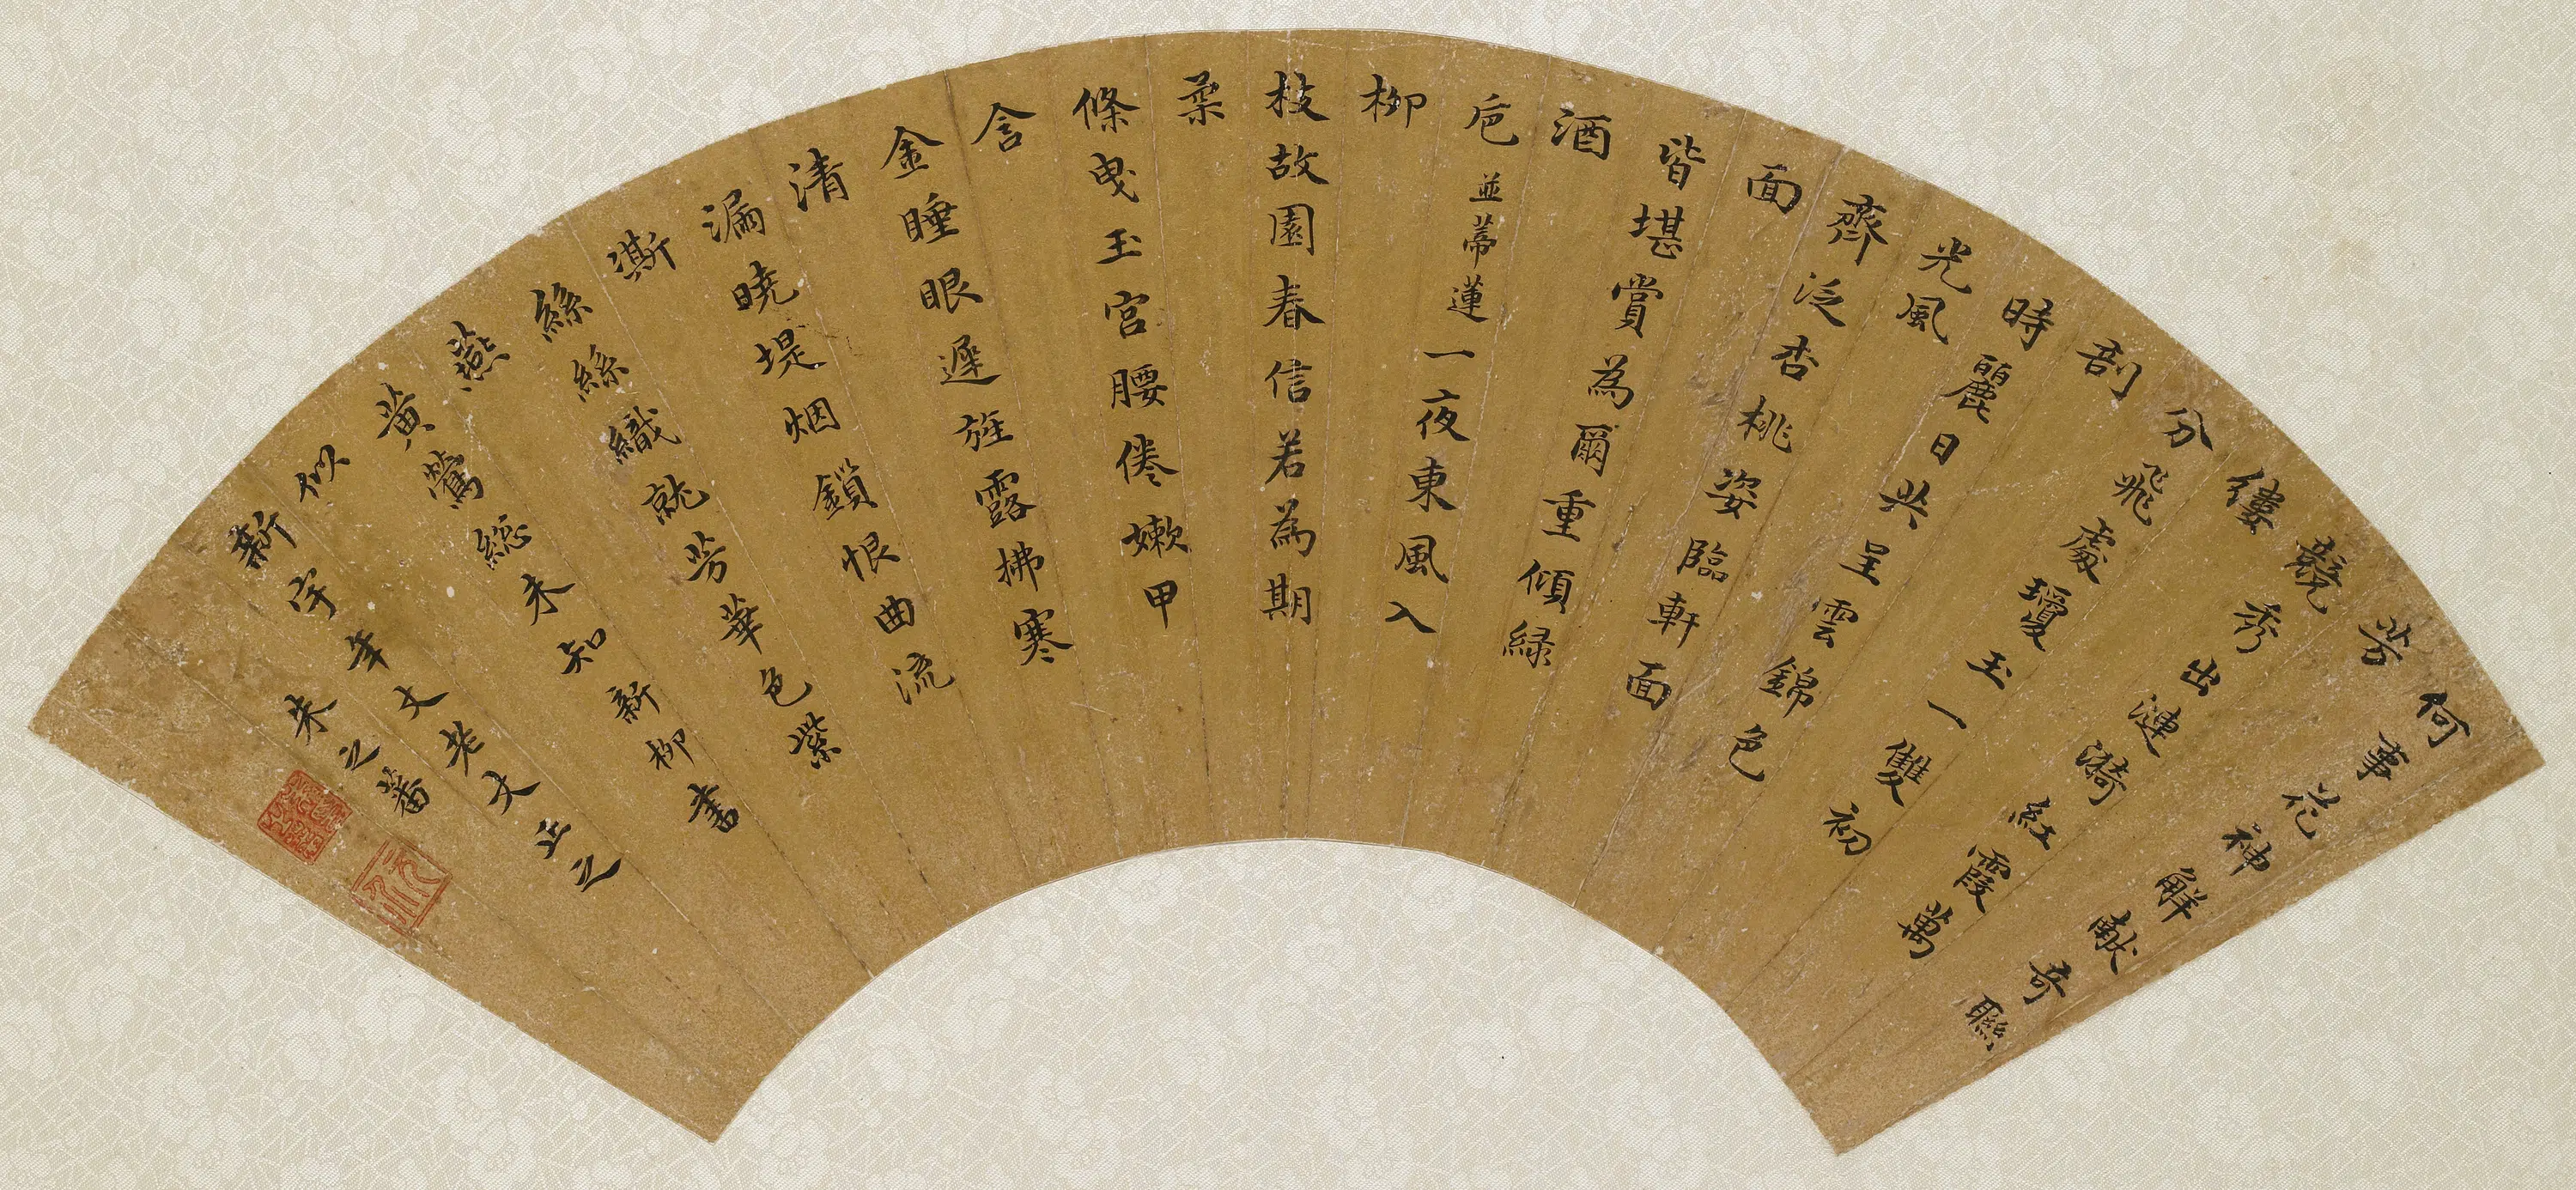 何事花神解献奇聯
芳
競秀出漣漪紅霞萬
縷
分飛處瓊玉一雙初
剖
時麗日共呈雲錦色
光風
齊泛杏桃姿臨軒面
面
皆堪賞為爾重傾緑
酒
巵並蒂蓮一夜東風入
柳
枝故園春信若為期
柔
條曳玉宮腰倦嫩甲
含
金睡眼遲旌露拂寒
清
漏曉堤烟鎖恨曲流
澌
絲絲織就芳華色紫
燕
黄鶯総未知新柳書
似
新宇年丈老丈正之
朱之蕃